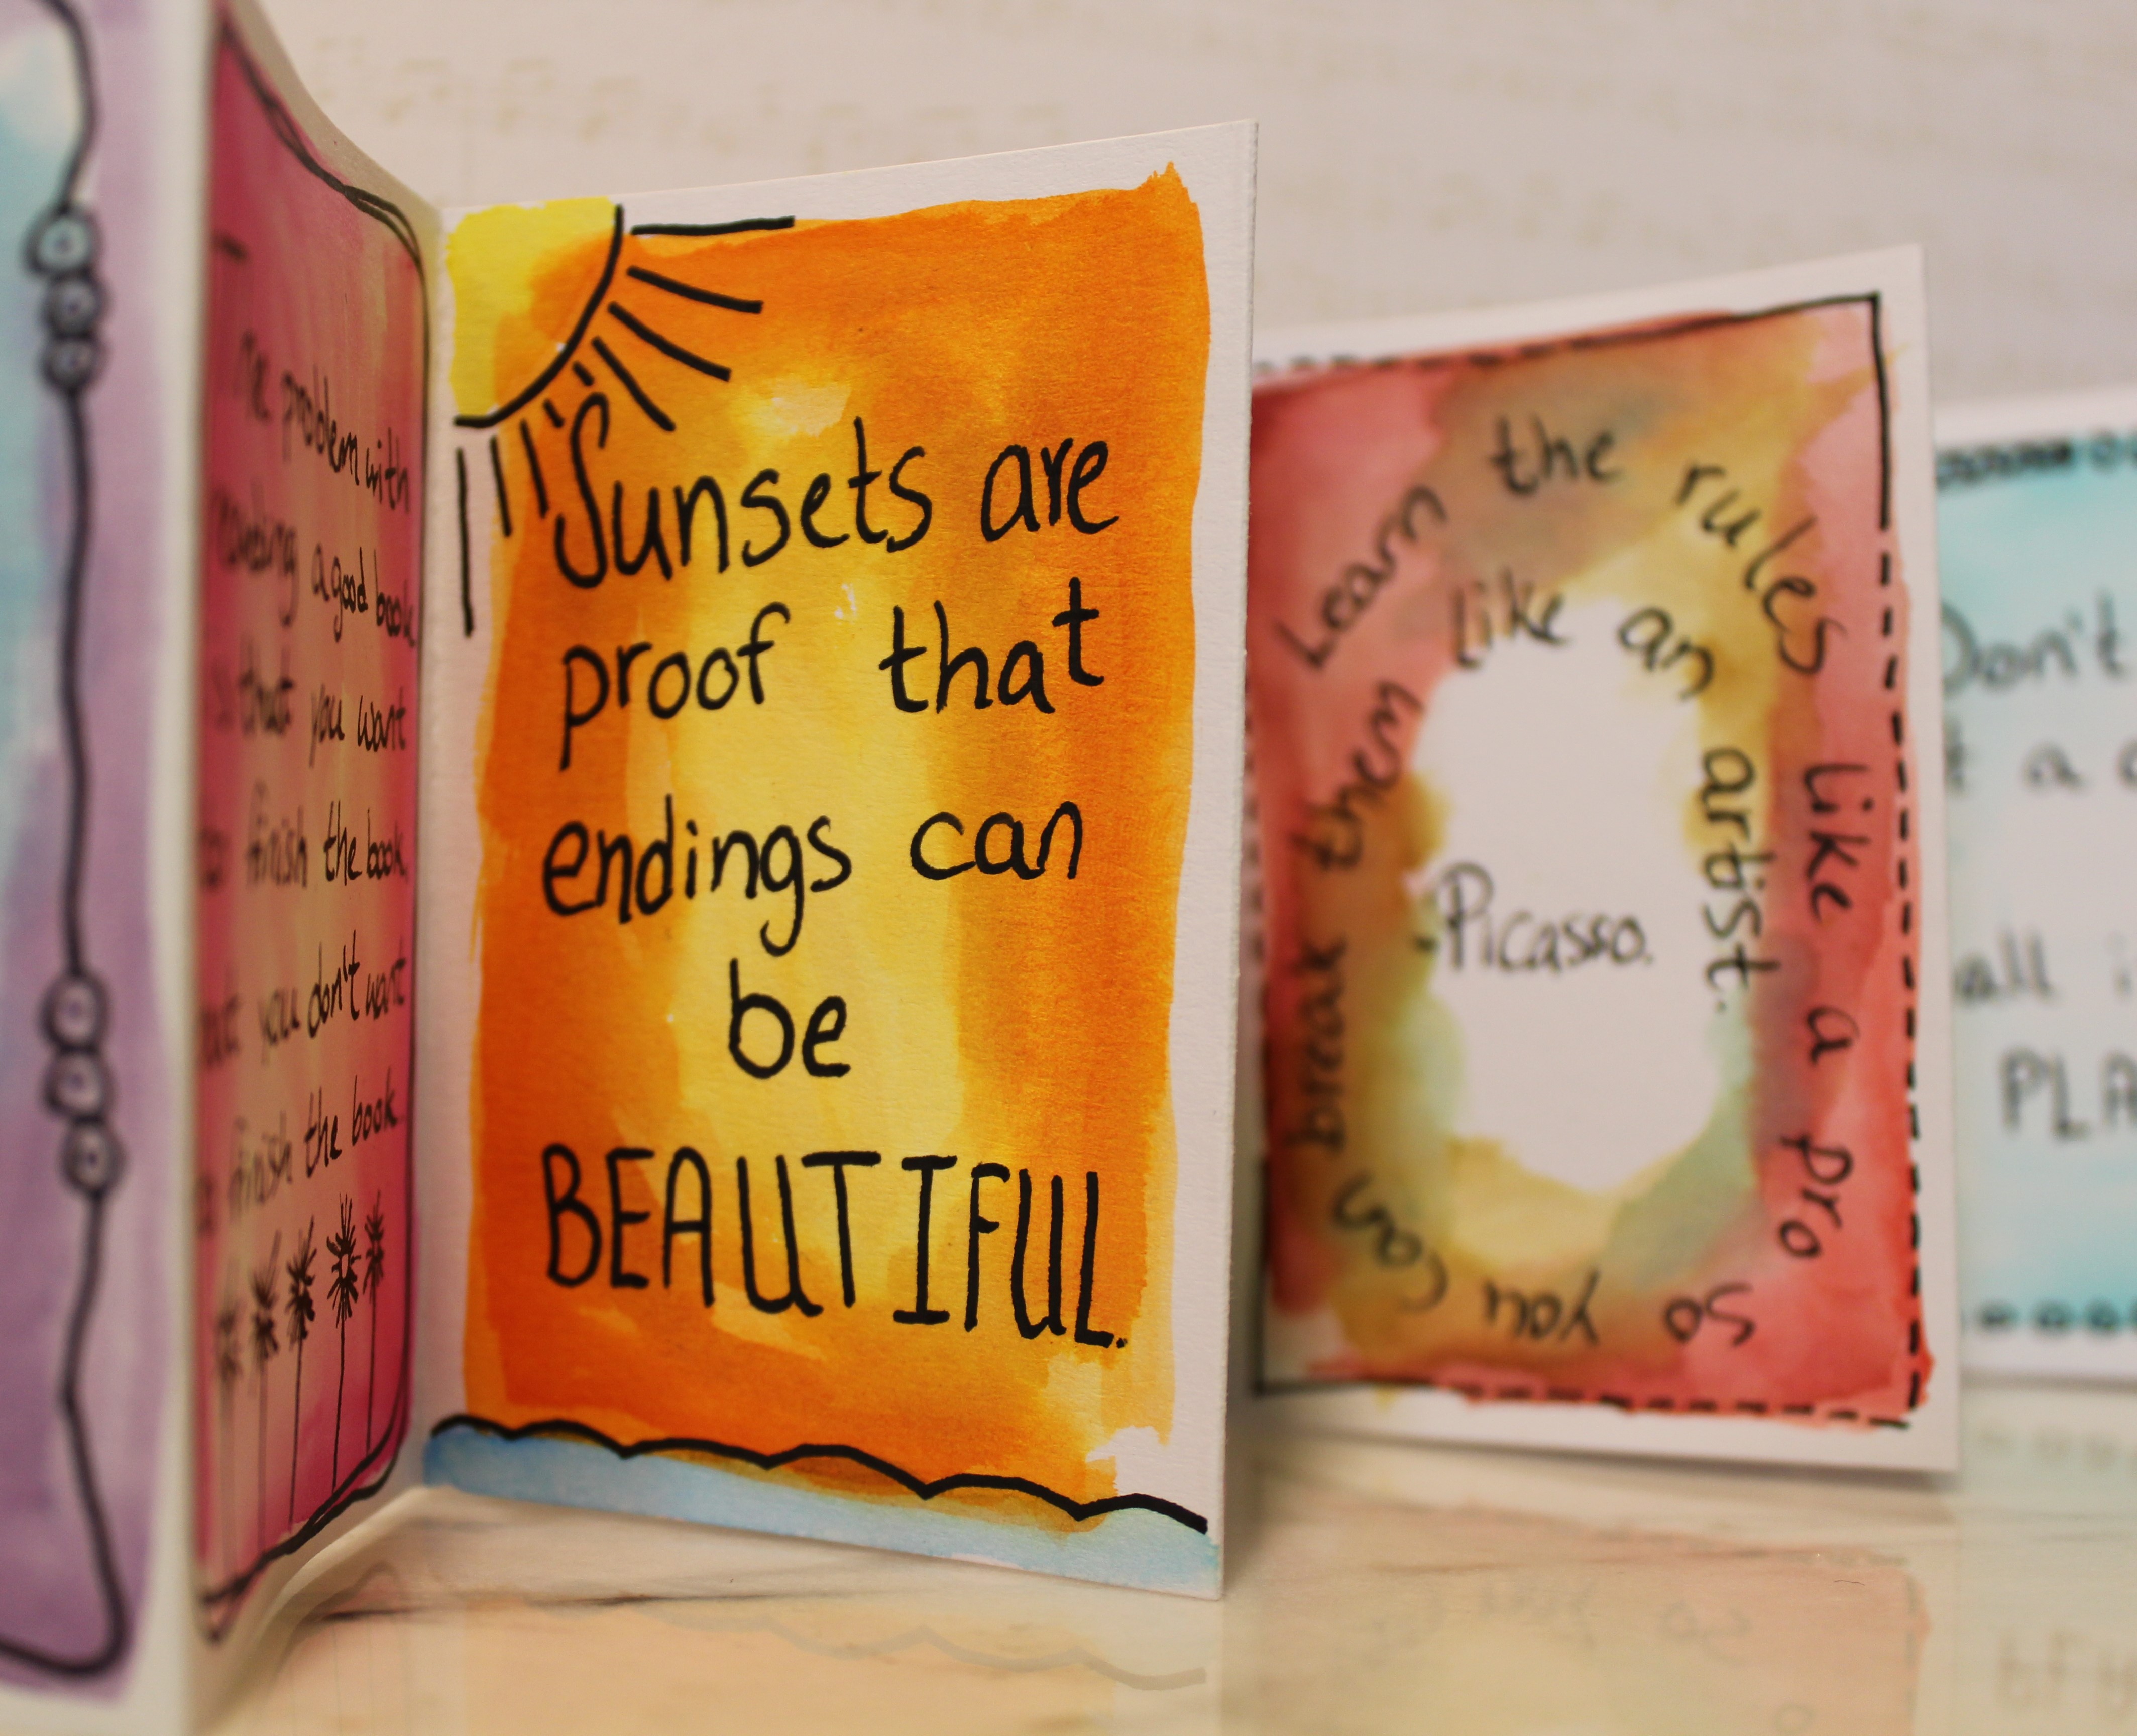 The problem with
reading a good book
is that you want
to finish the book,
but you don't want
to finish the book.
Sunsets are
proof that
endings can
be
BEAUTIFUL.
Learn the rules like a pro so you can break them like an artist.
Picasso.
Don't
a
all